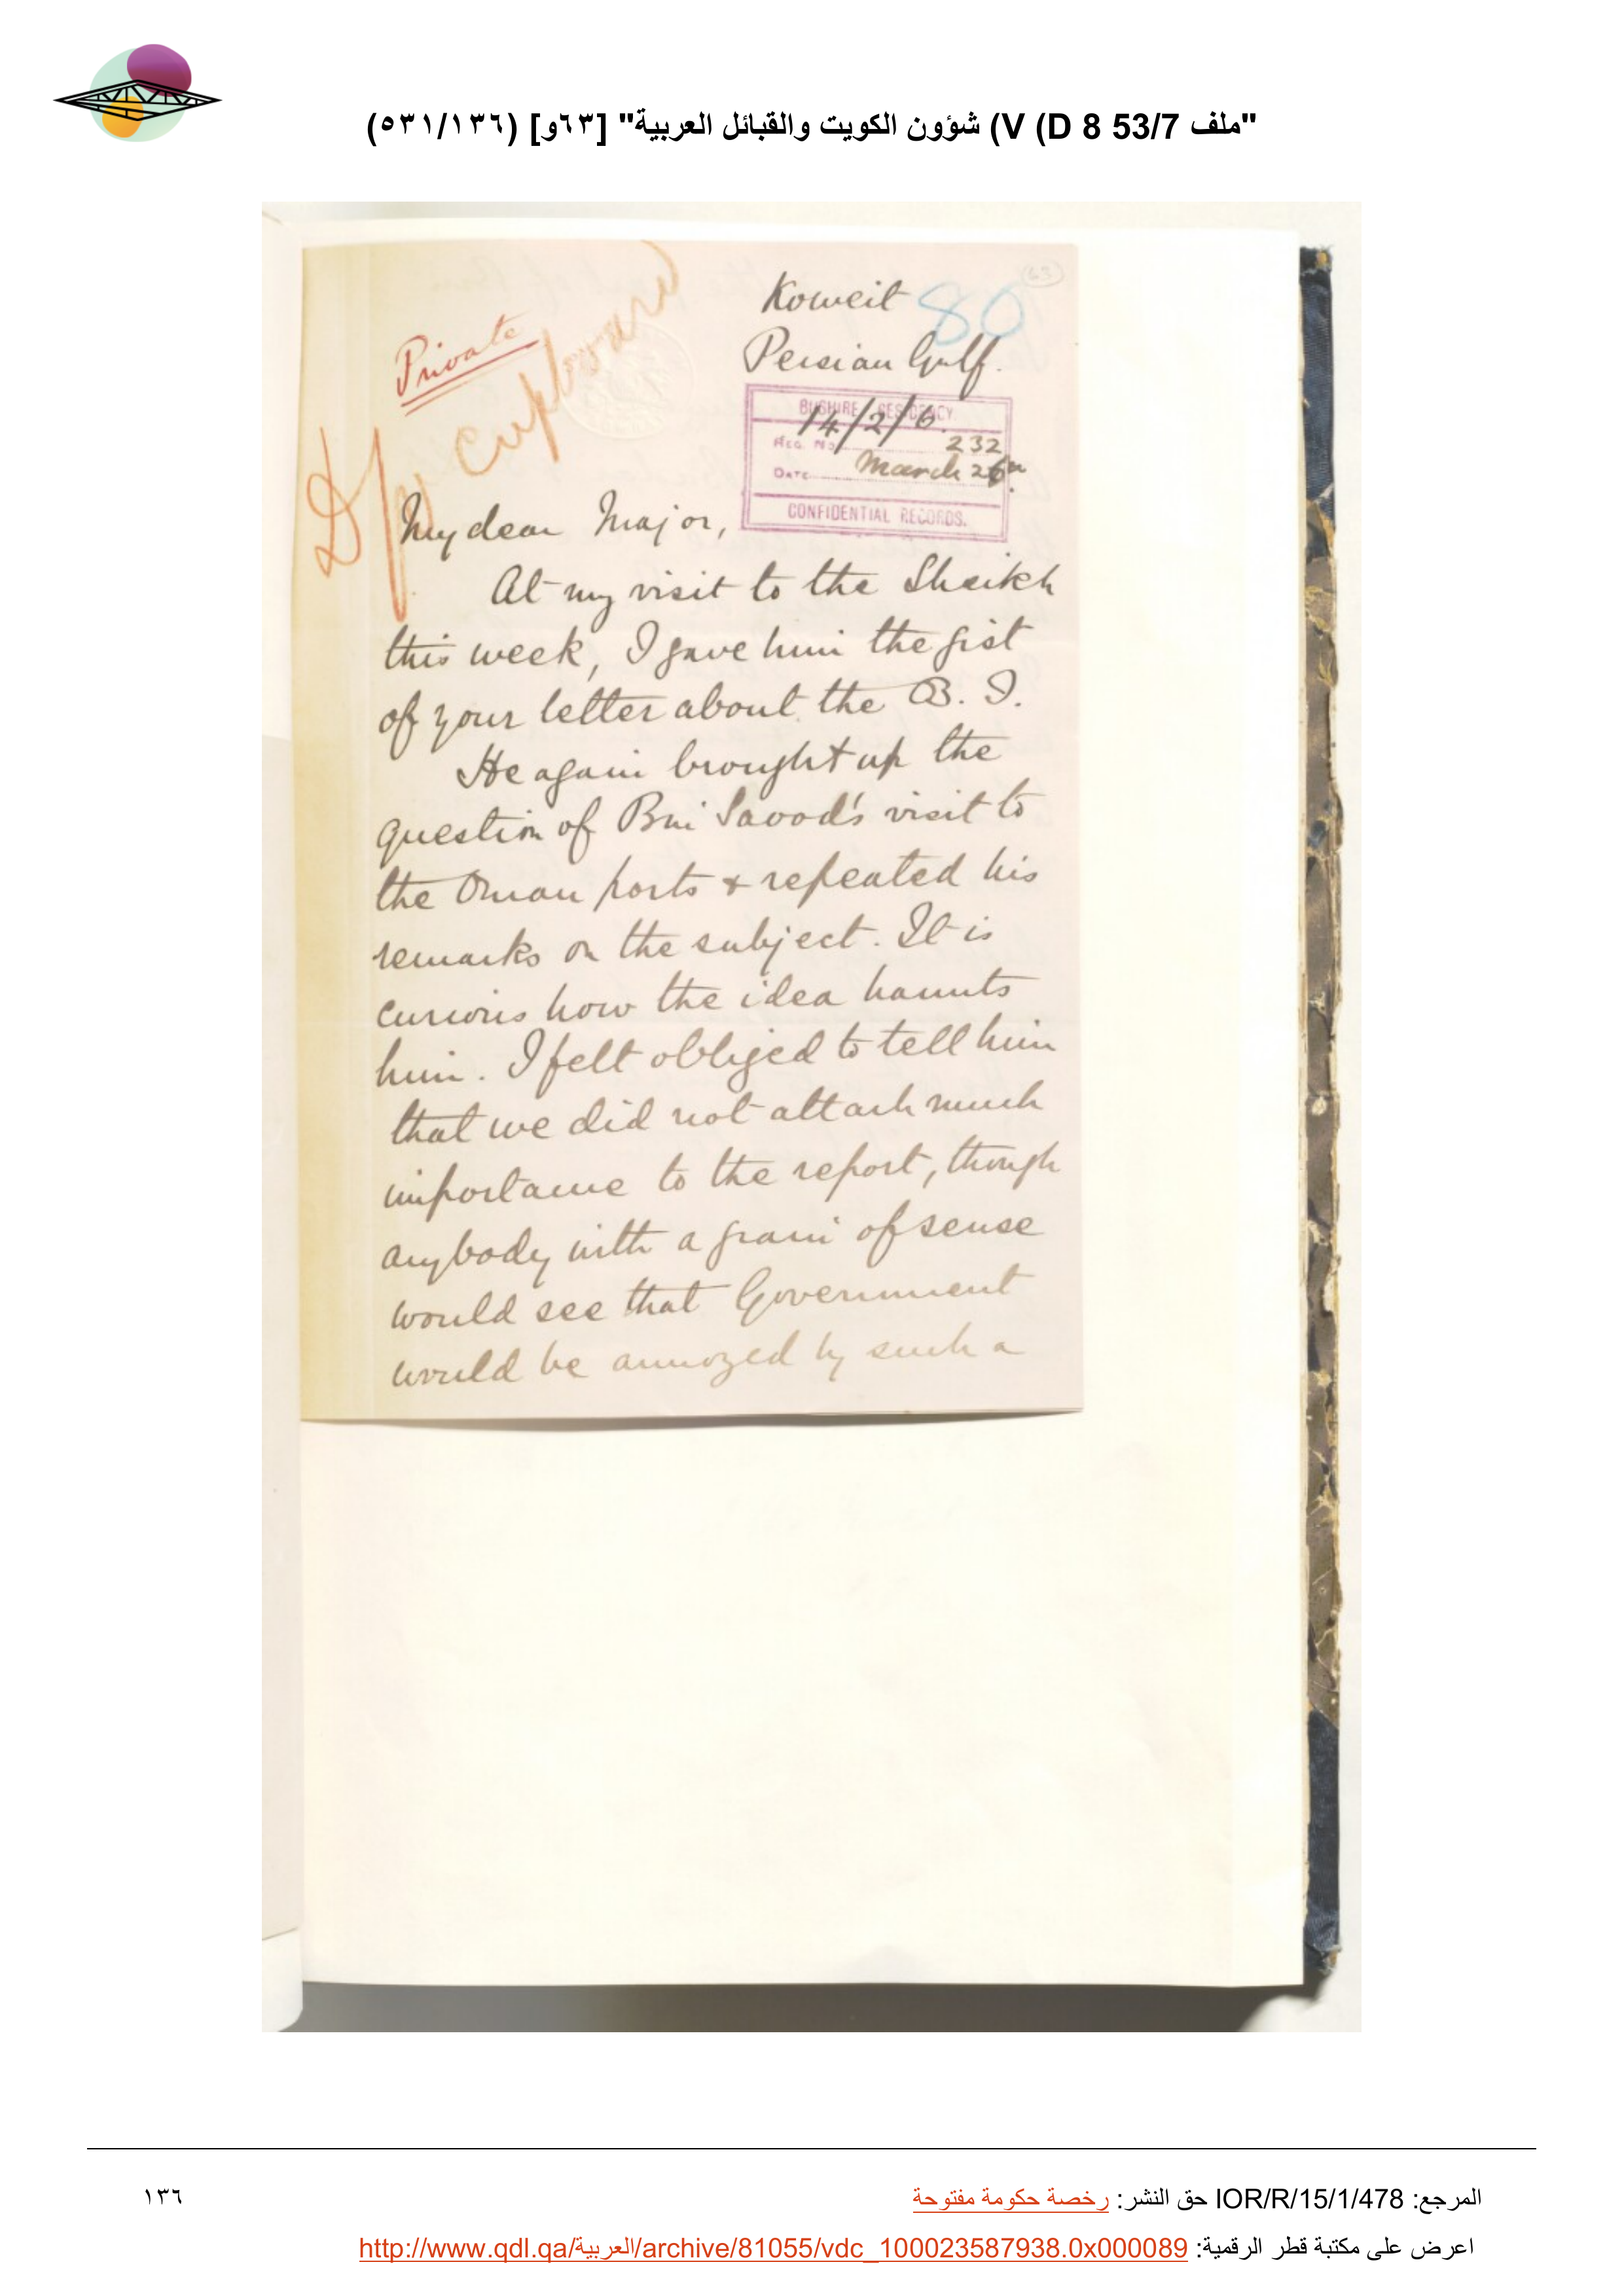 "ملف 53/7 D 8) V) شؤون الكويت والقبائل العربية" [٦٣و] (٥٣١/١٣٦)
63
Koweit
80
Persian Gulf.
Private
Cupboard
BUSHIRE RESIDENCY.
14/2/6.
REG. No. 232
DATE March 26th
CONFIDENTIAL RECORDS.
My dear Major,
At my visit to the Sheikh
this week, I gave him the gist
of your letter about the B. I.
He again brought up the
question of Bin Saood's visit to
the Oman ports & repeated his
remarks on the subject. It is
curious how the idea haunts
him. I felt obliged to tell him
that we did not attach much
importance to the report, though
anybody with a grain of sense
would see that Government
would be annoyed by such a
المرجع: IOR/R/15/1/478 حق النشر: رخصة حكومة مفتوحة
١٣٦
اعرض على مكتبة قطر الرقمية: http://www.qdl.qa/العربية/archive/81055/vdc_100023587938.0x000089